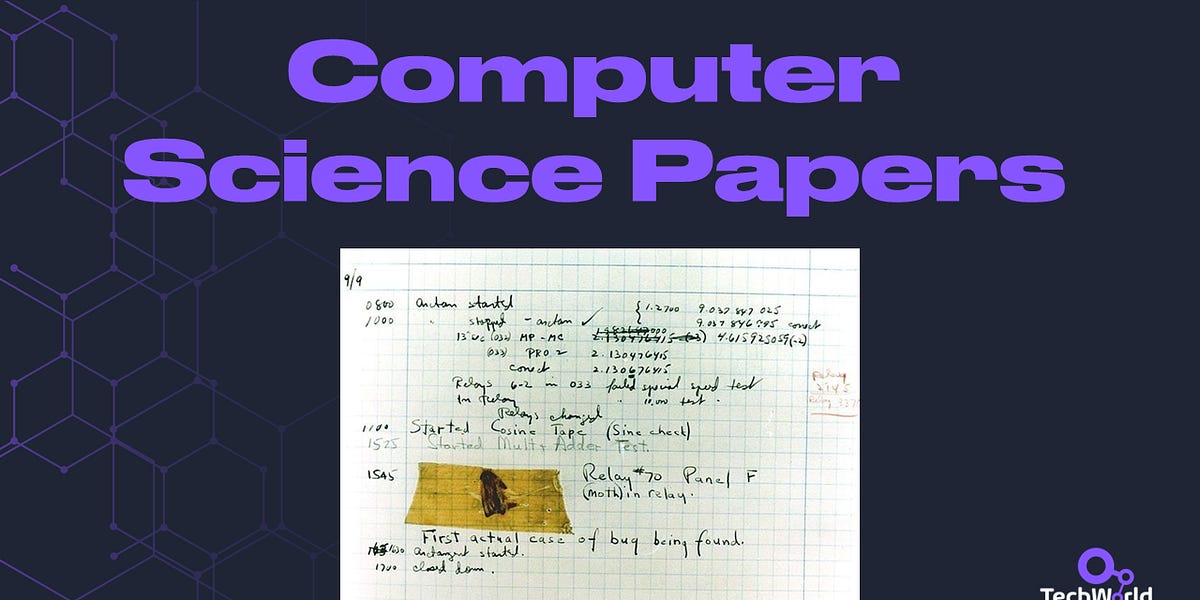 Computer
Science Papers
9/9
0800 Antan started
1000 " stopped - antan ✓
{ 1.2700 9.037 847 025
9.037 846 995 correct
13"uc (032) MP-MC 2.130476415 (-3) 4.615925059(-2)
(033) PRO 2 2.130476415
correct 2.130676415
Relays 6-2 in 033 failed special speed test
in Relay " 10,000 test .
Relays changed
Relay
2145
Relay 3370
1100 Started Cosine Tape (Sine check)
1525 Started Mult + Adder Test.
1545 Relay #70 Panel F
(moth) in relay.
First actual case of bug being found.
1630 antangent started.
1700 closed down.
TechWorld